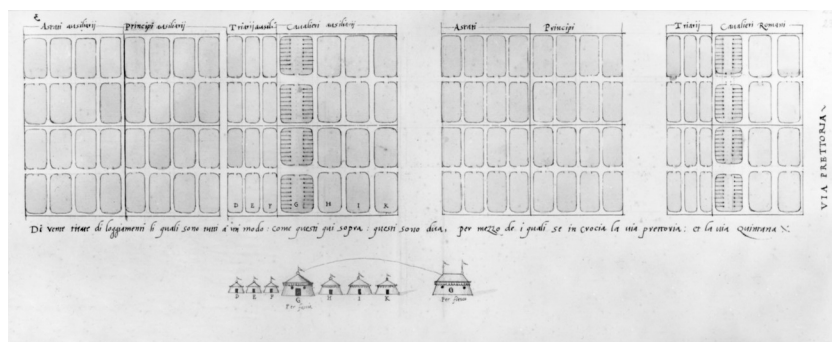 Astati ausiliarij Principi ausiliarij Triarij ausili Cavalieri ausiliarij Astati Principi Triarij Cavalieri Romani
VIA PRETTORIA
D E F G H I K
Di vente ritate di loggiamenti li quali sono tutti a un modo: come questi qui sopra: questi sono dieci, per mezzo de i quali se in crocia la via prettoria: et la via Quintana X.
D E F G H I K G
Per fianco Per fianco